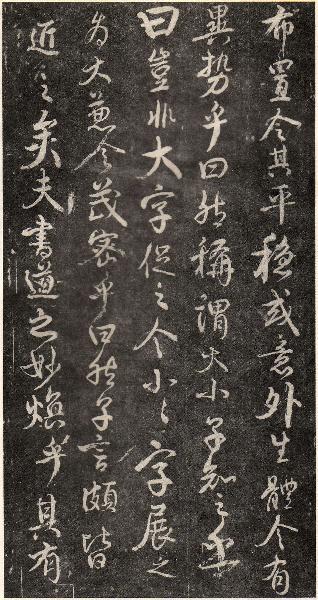 布置令其平稳或意外生體令有
異勢乎曰然稱謂大小子知之乎
曰豈非大字促之令小小字展之
為大兼令茂密乎曰然子言頗皆
近之矣夫書道之妙煥乎其有